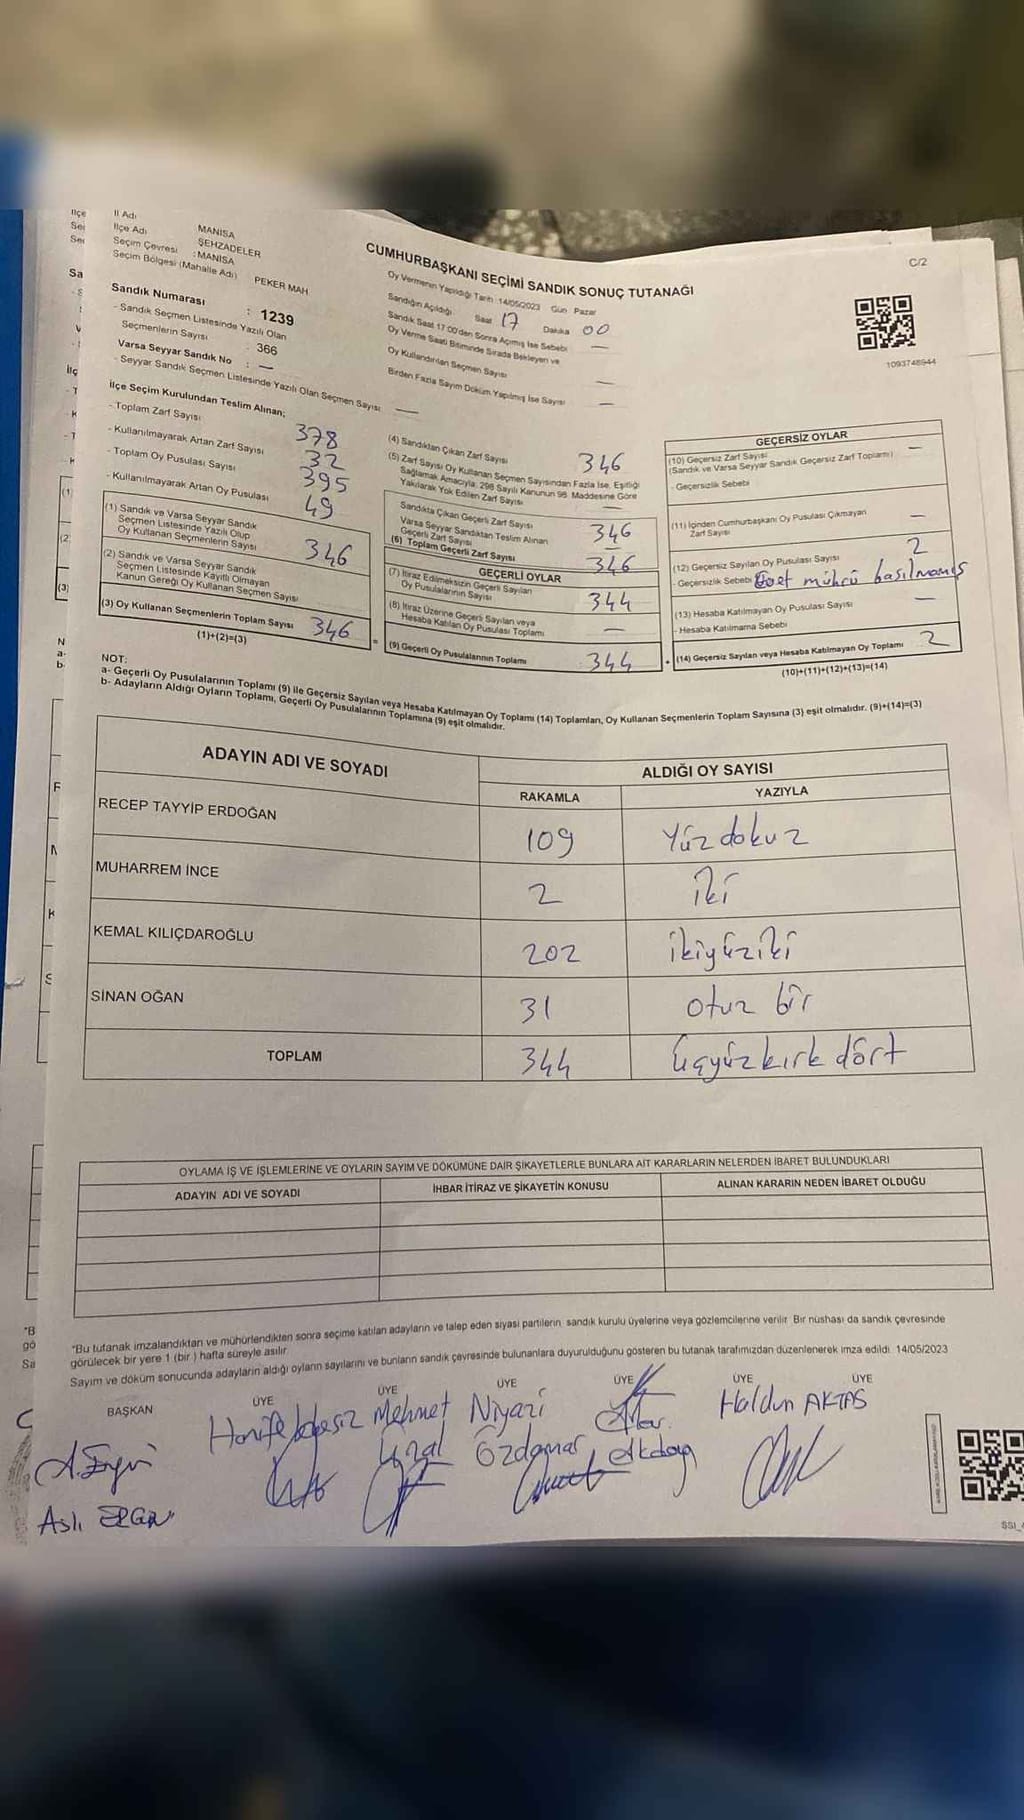 İl Adı
İlçe Adı MANİSA
Seçim Çevresi ŞEHZADELER
Seçim Bölgesi (Mahalle Adı) : MANİSA
PEKER MAH
CUMHURBAŞKANI SEÇİMİ SANDIK SONUÇ TUTANAĞI
C/2
Oy Vermenin Yapıldığı Tarih :14/05/2023 Gün Pazar
Sandığın Açıldığı Saat 17 Dakika 00
Sandık Saat 17:00'den Sonra Açımış İse Sebebi —
Oy Verme Saati Bitiminde Sırada Bekleyen ve
Oy Kullandırılan Seçmen Sayısı —
Birden Fazla Sayım Döküm Yapılmış İse Sayısı —
1093748944
Sandık Numarası : 1239
- Sandık Seçmen Listesinde Yazılı Olan
Seçmenlerin Sayısı : 366
Varsa Seyyar Sandık No : —
- Seyyar Sandık Seçmen Listesinde Yazılı Olan Seçmen Sayısı —
İlçe Seçim Kurulundan Teslim Alınan;
- Toplam Zarf Sayısı 378
- Kullanılmayarak Artan Zarf Sayısı 32
- Toplam Oy Pusulası Sayısı 395
- Kullanılmayarak Artan Oy Pusulası 49
(1) Sandık ve Varsa Seyyar Sandık
Seçmen Listesinde Yazılı Olup
Oy Kullanan Seçmenlerin Sayısı 346
(2) Sandık ve Varsa Seyyar Sandık
Seçmen Listesinde Kayıtlı Olmayan
Kanun Gereği Oy Kullanan Seçmen Sayısı
(3) Oy Kullanan Seçmenlerin Toplam Sayısı 346
(1)+(2)=(3)
(4) Sandıktan Çıkan Zarf Sayısı 346
(5) Zarf Sayısı Oy Kullanan Seçmen Sayısından Fazla İse, Eşitliği
Sağlamak Amacıyla; 298 Sayılı Kanunun 98. Maddesine Göre
Yakılarak Yok Edilen Zarf Sayısı —
Sandıkta Çıkan Geçerli Zarf Sayısı 346
Varsa Seyyar Sandıktan Teslim Alınan
Geçerli Zarf Sayısı —
(6) Toplam Geçerli Zarf Sayısı 346
GEÇERLİ OYLAR
(7) İtiraz Edilmeksizin Geçerli Sayılan
Oy Pusulalarının Sayısı 344
(8) İtiraz Üzerine Geçerli Sayılan veya
Hesaba Katılan Oy Pusulası Toplamı —
= (9) Geçerli Oy Pusulalarının Toplamı 344
GEÇERSİZ OYLAR
(10) Geçersiz Zarf Sayısı —
(Sandık ve Varsa Seyyar Sandık Geçersiz Zarf Toplamı)
- Geçersizlik Sebebi
(11) İçinden Cumhurbaşkanı Oy Pusulası Çıkmayan
Zarf Sayısı —
(12) Geçersiz Sayılan Oy Pusulası Sayısı 2
- Geçersizlik Sebebi Evet mührü basılmamış
(13) Hesaba Katılmayan Oy Pusulası Sayısı —
- Hesaba Katılmama Sebebi
+ (14) Geçersiz Sayılan veya Hesaba Katılmayan Oy Toplamı 2
(10)+(11)+(12)+(13)=(14)
NOT:
a- Geçerli Oy Pusulalarının Toplamı (9) ile Geçersiz Sayılan veya Hesaba Katılmayan Oy Toplamı (14) Toplamları, Oy Kullanan Seçmenlerin Toplam Sayısına (3) eşit olmalıdır. (9)+(14)=(3)
b- Adayların Aldığı Oyların Toplamı, Geçerli Oy Pusulalarının Toplamına (9) eşit olmalıdır.
ADAYIN ADI VE SOYADI
ALDIĞI OY SAYISI
RAKAMLA YAZIYLA
RECEP TAYYİP ERDOĞAN 109 Yüz dokuz
MUHARREM İNCE 2 iki
KEMAL KILIÇDAROĞLU 202 ikiyüziki
SİNAN OĞAN 31 otuz bir
TOPLAM 344 üçyüzkırk dört
OYLAMA İŞ VE İŞLEMLERİNE VE OYLARIN SAYIM VE DÖKÜMÜNE DAİR ŞİKAYETLERLE BUNLARA AİT KARARLARIN NELERDEN İBARET BULUNDUKLARI
ADAYIN ADI VE SOYADI İHBAR İTİRAZ VE ŞİKAYETİN KONUSU ALINAN KARARIN NEDEN İBARET OLDUĞU
*Bu tutanak imzalandıktan ve mühürlendikten sonra seçime katılan adayların ve talep eden siyasi partilerin sandık kurulu üyelerine veya gözlemcilerine verilir. Bir nüshası da sandık çevresinde
görülecek bir yere 1 (bir ) hafta süreyle asılır.
Sayım ve döküm sonucunda adayların aldığı oyların sayılarını ve bunların sandık çevresinde bulunanlara duyurulduğunu gösteren bu tutanak tarafımızdan düzenlenerek imza edildi. 14/05/2023
BAŞKAN ÜYE ÜYE ÜYE ÜYE ÜYE ÜYE
Mehmet Ünal
Niyazi Özdamar
Akdag
Haldun AKTAS
Aslı ERGİN